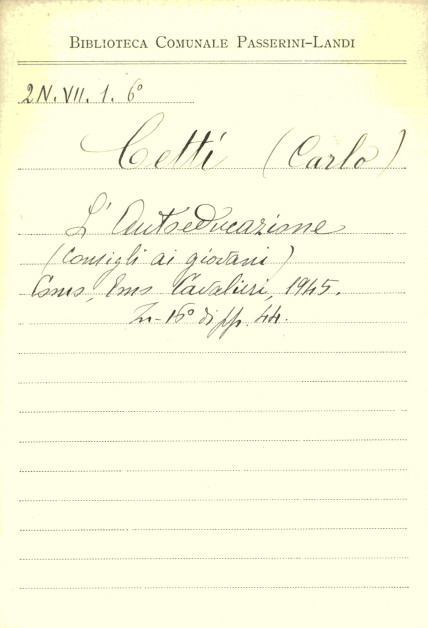 BIBLIOTECA COMUNALE PASSERINI-LANDI
2N. VII. 1. 6°
Cetti (Carlo)
L'Autoeducazione
(Consigli ai giovani)
Como, Emo Cavalieri, 1945.
In-16° di pp. 44.